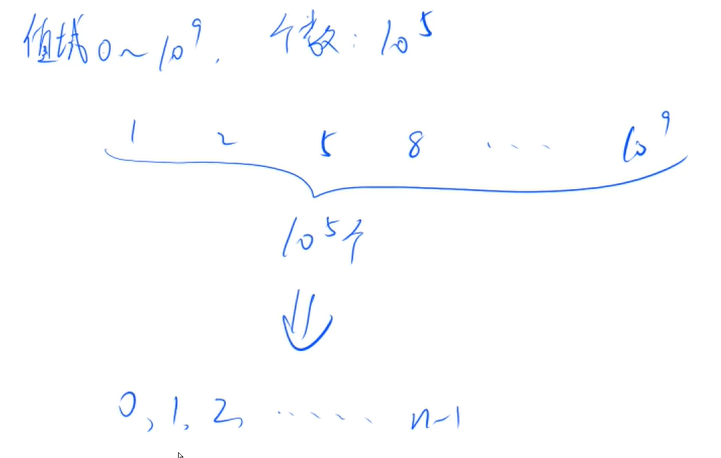 值域0~10⁹. 个数: 10⁵
1 2 5 8 ···· 10⁹
10⁵个
0, 1, 2, ····· n-1